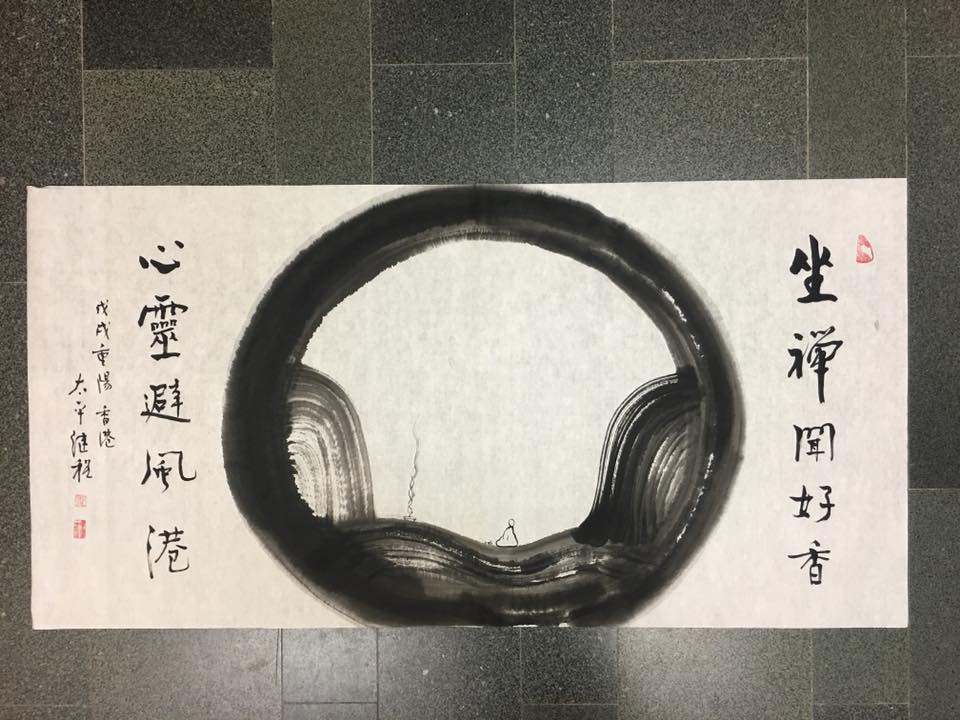 坐禪聞好香
心靈避風港
戊戌重陽香港
太平继程